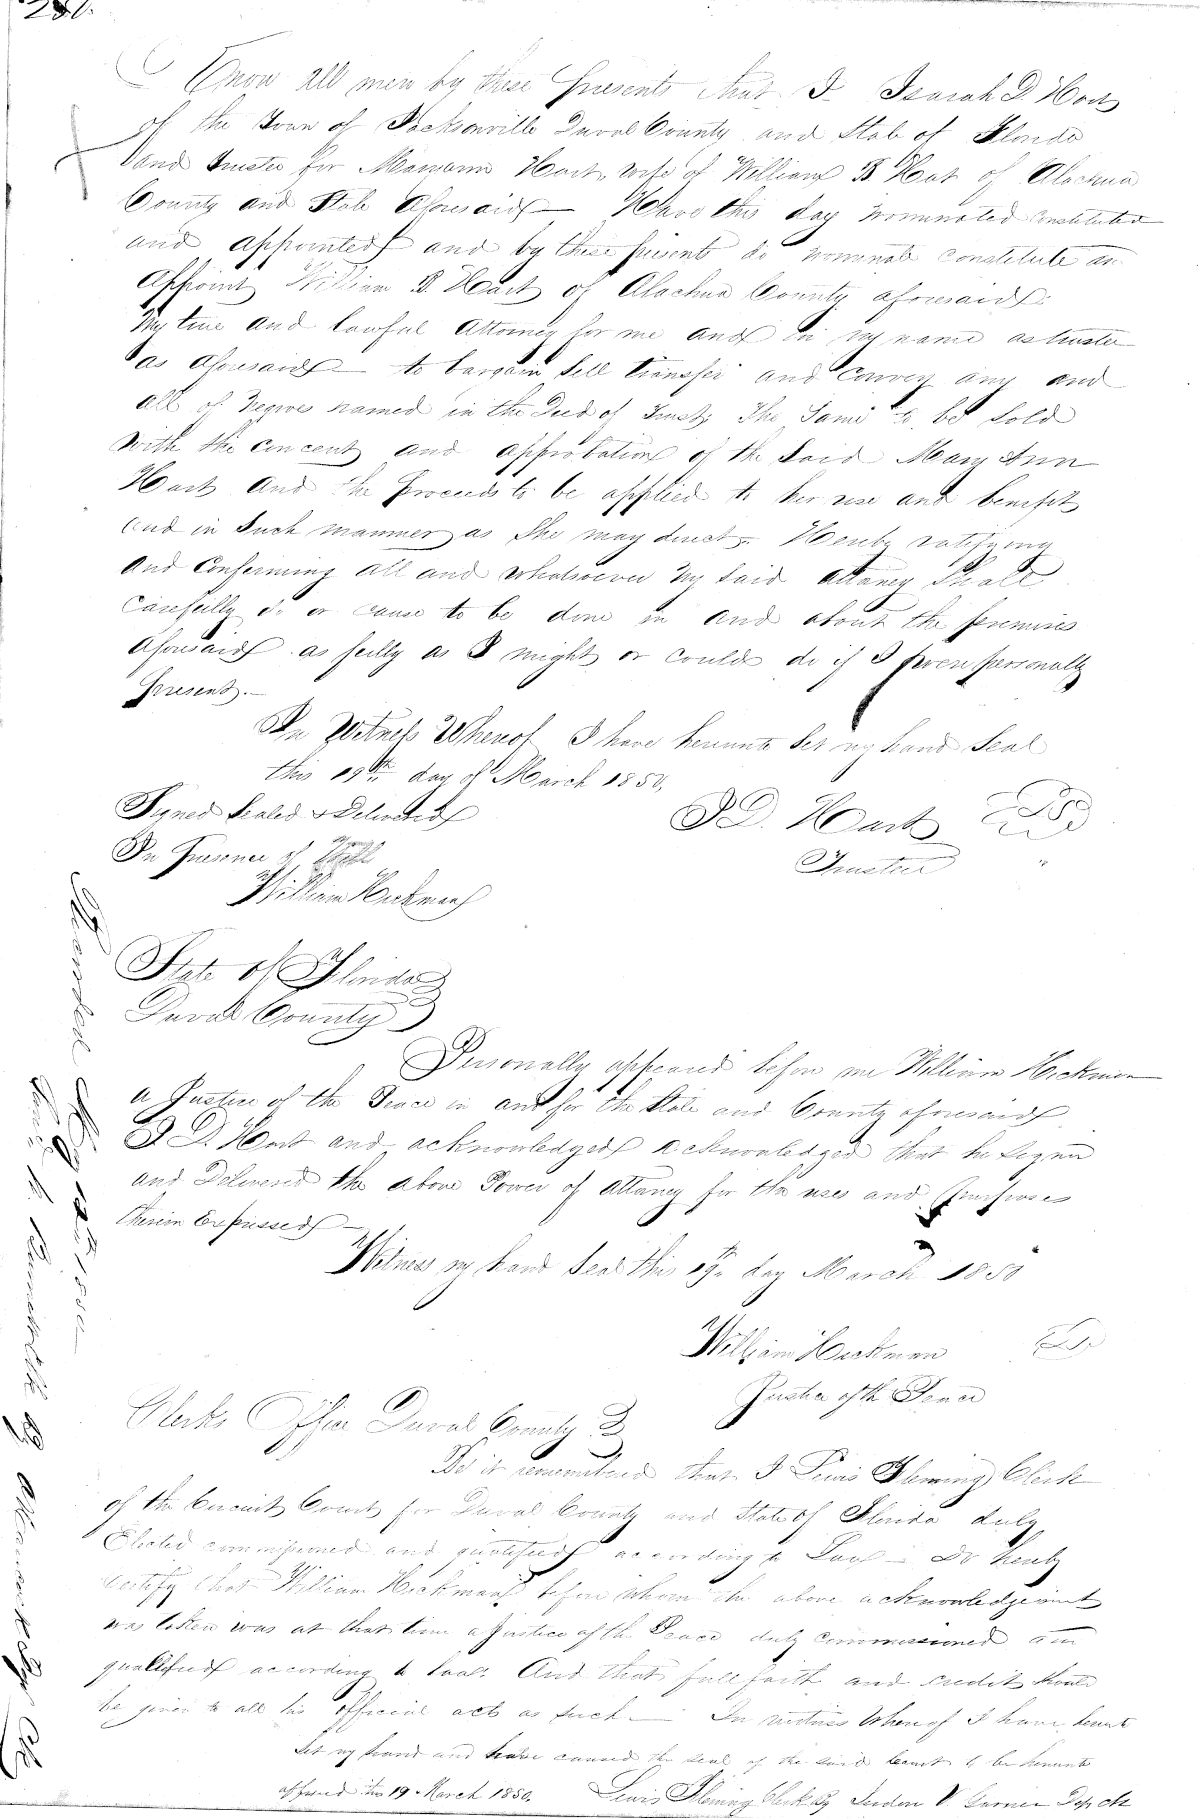 280.
Know all men by these presents that I Isaiah D. Hart
of the Town of Jacksonville Duval County and State of Florida
and Trustee for Maryann Hart, wife of William B Hart of Alachua
County and State aforesaid — Have this day nominated constituted
and appointed and by these presents do nominate constitute an
Appoint William B. Hart of Alachua County aforesaid.
My true and lawful Attorney for me and in my name as trustee
as aforesaid — to bargain sell transfer and convey any and
all of Negroes named in the Deed of Trust; The Same to be Sold
with the concent and approbation of the Said Mary Ann
Hart and the proceeds to be applied to her use and benefit
and in Such manner as She may direct. Hereby ratifying
and Confirming all and whatsoever My Said Attorney Shall
carefully do or cause to be done in and about the premises
aforesaid as fully as I might or could do if I were personally
present. —
In Witness Whereof I have hereunto Set my hand Seal
this 19th day of March 1850.
Signed Sealed & Delivered
In Presence of
William Hickman
I D. Hart
Trustee
State of Florida
Duval County
Personally appeared before me William Hickman
a Justice of the Peace in and for the State and County aforesaid
I D. Hart and acknowledged acknowledged that he Signed
and Delivered the above Power of Attorney for the uses and purposes
therein Expressed —
Witness my hand Seal this 19th day March 1850
William Hickman
Justice of the Peace
Clerks Office Duval County
Be it remembered that I Lewis Fleming Clerk
of the Circuit Court for Duval County and State of Florida duly
Elected commissioned and qualified according to Law — Do hereby
certify that William Hickman before whom the above acknowledgement
was taken was at that time a Justice of the Peace duly commissioned and
qualified according to law. And that full faith and credit should
be given to all his official acts as such — In witness Whereof I have hereunto
Set my hand and have caused the seal of the said Court to be hereunto
affixed this 19 March 1850. Lewis Fleming Clerk By
Recorded May 12th 1850